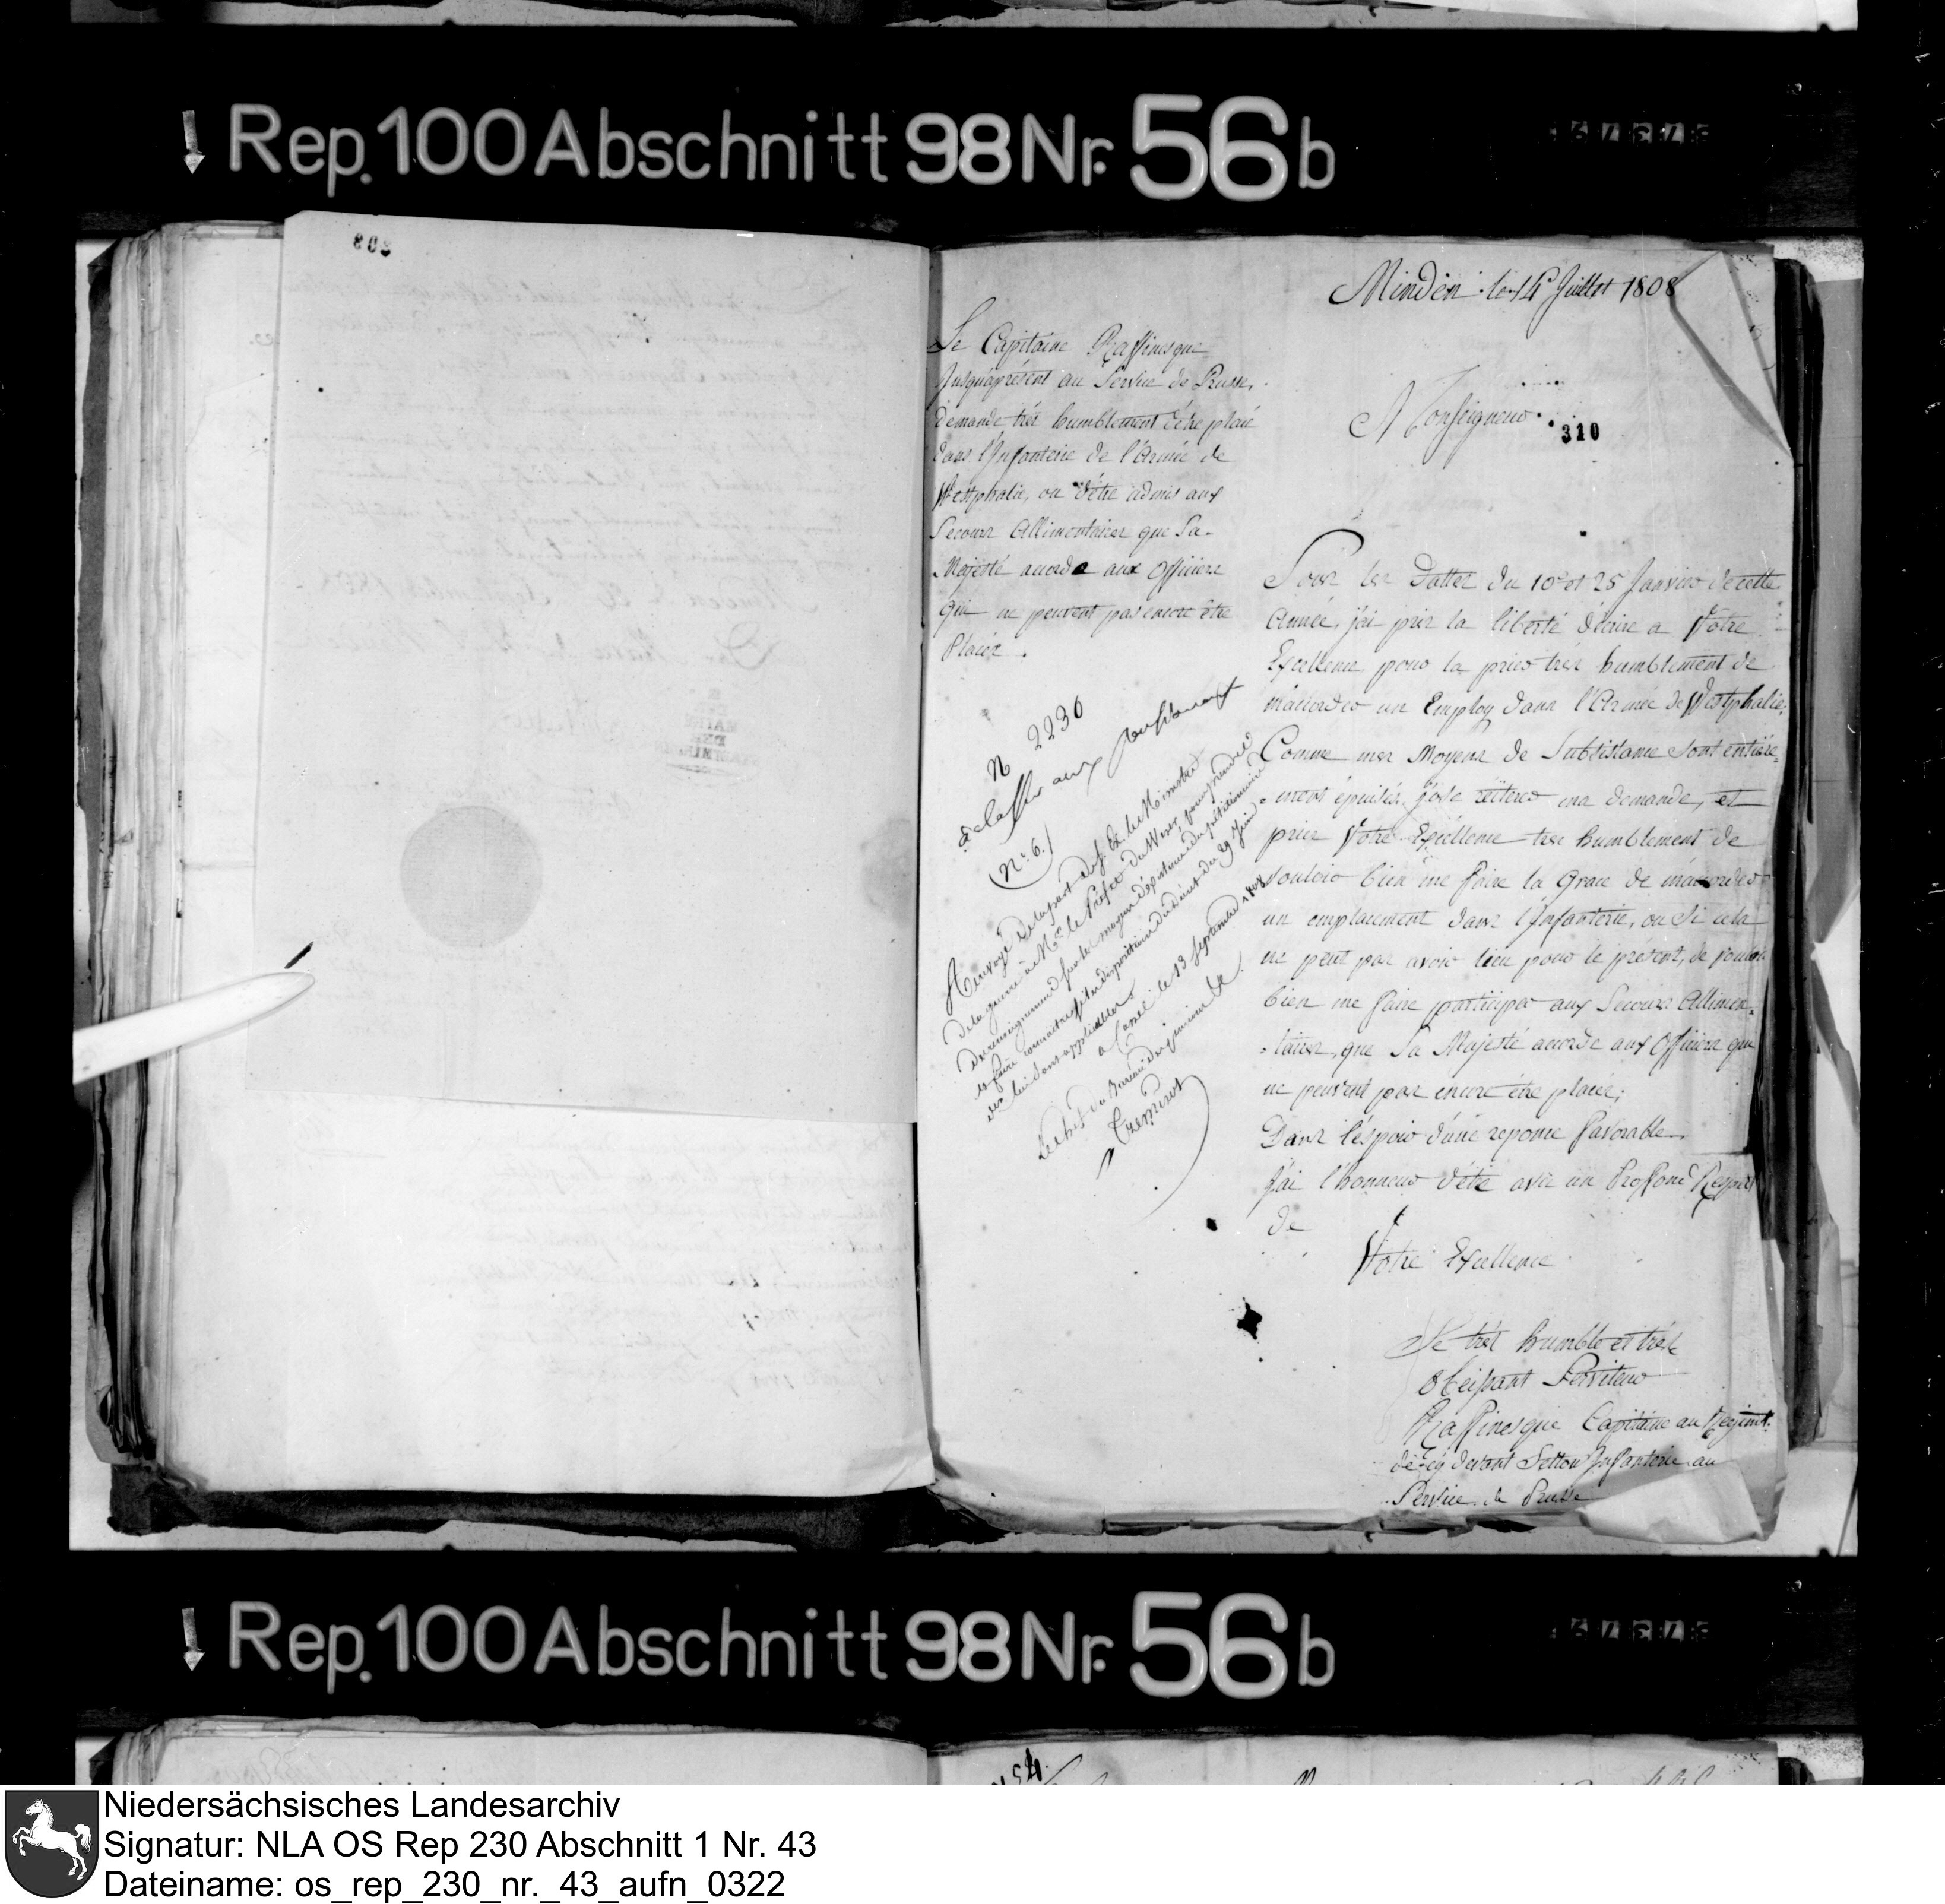 Rep. 100 Abschnitt 98 Nr. 56 b
Minden le 14 Juillet 1808
Le Capitaine Raffinesque
Jusqu'aprésent au Service de Prusse,
demande trés humblement d'être placé
dans l'Infanterie de l'Armée de
Westphalie, ou d'être admis aux
Secours Allimentaires que Sa
Majesté accorde aux Officiers
qui ne peuvent pas encore être
Placés.
N 2236
(N. 6.)
Renvoyé de la part de S. Ex. le Ministre
de la guerre à Mr. le Préfet du Weser, pour prendre
des renseignemens sur les moyens d'existence du pétitionnaire
et faire connaitre si les dispositions du décret du 29 Juin
lui sont applicables
a Cassel le 13 Septembre 1808
Le chef du Bureau du génie
Monseigneur
310
Sous les Dattes du 10 et 25 Janvier de cette
Année, j'ai pris la liberté d'écrire a Votre
Excellence pour la prier très humblement de
m'accorder un Employ dans l'Armée de Westphalie,
Comme mes Moyens de Subsistance sont entière=
=ment épuisés, j'ose réitérer ma demande, et
prier Votre Excellence tres humblement de
vouloir bien me faire la Grace de m'accorder
un emplacement dans l'Infanterie, ou Si cela
ne peut pas avoir lieu pour le présent, de vouloir
bien me faire participer aux Secours Allimen=
=taires, que Sa Majesté accorde aux Officiers qui
ne peuvent pas encore être placés;
Dans l'éspoir d'une reponse favorable,
j'ai l'honneur d'être avec un Proffond Respect
de
Votre Excellence
Le trés humble et trés
Obeissant Serviteur
Raffinesque Capitaine au Regimt.
de cy devant Infanterie au
Service de Prusse
Rep. 100 Abschnitt 98 Nr. 56 b
Niedersächsisches Landesarchiv
Signatur: NLA OS Rep 230 Abschnitt 1 Nr. 43
Dateiname: os_rep_230_nr._43_aufn_0322